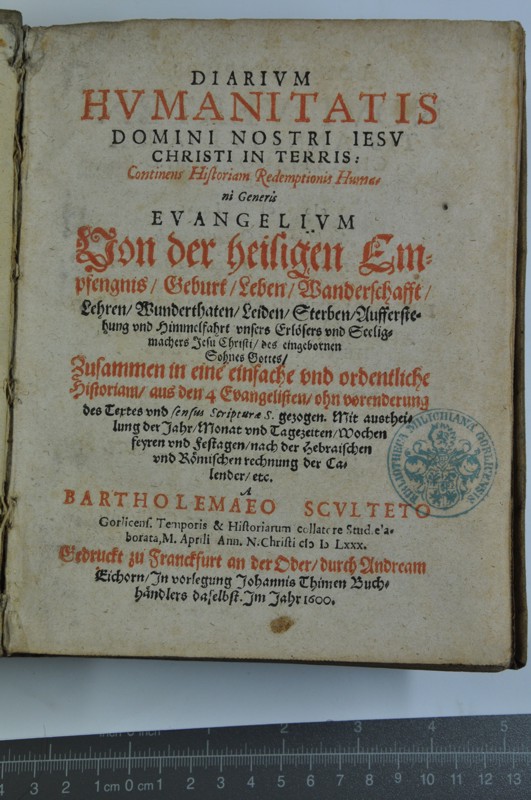 DIARIVM
HVMANITATIS
DOMINI NOSTRI IESV
CHRISTI IN TERRIS:
Continens Historiam Redemptionis Huma-
ni Generis
EVANGELIVM
Von der heiligen Em-
pfengnis/ Geburt/ Leben/ Wanderschafft/
Lehren/ Wunderthaten/ Leiden/ Sterben/ Aufferste-
hung vnd Himmelfahrt vnsers Erlösers vnd Seelig-
machers Jesu Christi/ des eingebornen
Sohnes Gottes/
Zusammen in eine einfache vnd ordentliche
Historiam/ aus den 4 Evangelisten/ ohn vorenderung
des Textes vnd sensus Scripturæ S. gezogen. Mitausthei-
lung der Jahr/ Monat vnd Tagezeiten/ Wochen
feyren vnd Festagen/ nach der Hebraischen
vnd Römischen rechnung der Ca-
lender/ etc.
A
BARTHOLEMAEO SCVLTETO
Gorlicens. Temporis & Historiarum collatore Stud. e'a-
borata, M. Aprili Ann. N. Christi cIɔ Iɔ Lxxx.
Gedruckt zu Franckfurt an der Oder/ durch Andream
Eichorn/ In vorlegung Johannis Thimen Buch-
händlers daselbst. Im Jahr 1600.
BIBLIOTHECA MILICHIANA GORLICENSIS
inch 0 inch 1 2 3 4 5
4 3 2 1 cm 0 cm 1 2 3 4 5 6 7 8 9 10 11 12 13